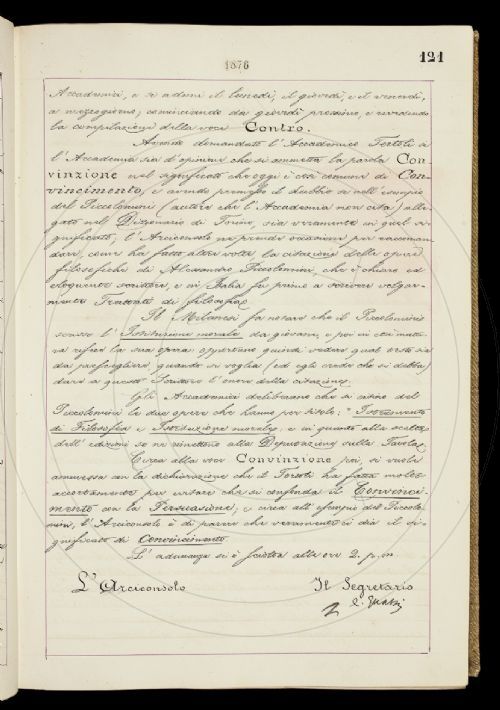 1876
121
Accademia, e si aduni il lunedì, il giovedì, e il venerdì,
a mezzogiorno; cominciando da giovedì prossimo, e
la compilazione della voce Contro.
Avendo domandato l'Accademico Tortoli se
l'Accademia sia d'opinione che si ammetta la parola Con-
vinzione nel significato che oggi è così comune di Con-
vincimento, e avendo promosso il dubbio se nell'esempio
del Piccolomini (autore che l'Accademia non cita) alle-
gato nel Dizionario di Torino, sia veramente in quel si-
gnificato; l'Arciconsolo ne prende occasione per raccoman-
dare, come ha fatto altra volta, la citazione delle opere
filosofiche di Alessandro Piccolomini, che è chiaro ed
eloquente scrittore, e in Italia fu primo a scrivere volgar-
mente Trattati di filosofia.
Il Milanesi fa notare che il Piccolomini
scrisse l'Istituzione morale da giovane, e poi in età matu-
ra rifece la sua opera: opportuno quindi vedere qual testo sia
da prescegliere, quando si voglia (ed egli crede che si debba)
dare a questo Scrittore l'onore della citazione.
Gli Accademici deliberano che si citino del
Piccolomini le due opere che hanno per titolo: "Istrumento
di Filosofia e Istituzione morale, e in quanto alla scelta
dell'edizione se ne rimettono alla Deputazione sulla Tavola.
Circa alla voce Convinzione poi, si vuole
ammessa con la dichiarazione che il Tortoli ha fatta molto
accortamente per evitare che si confonda il Convinci-
mento con la Persuasione, e circa all'esempio del Piccolo-
mini, l'Arciconsolo è di parere che veramente ci dia il si-
gnificato di Convincimento.
L'adunanza si è sciolta alle ore 2. p. m.
L'Arciconsolo
Il Segretario